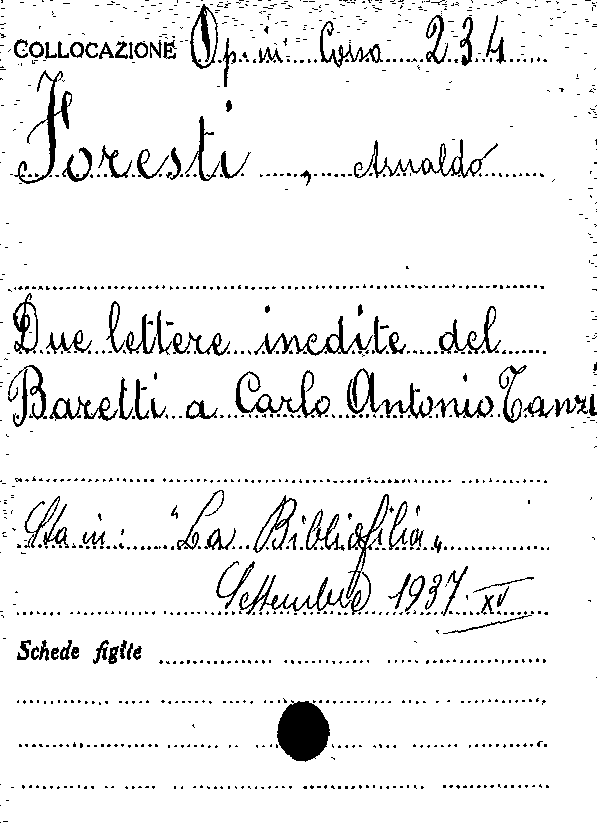 COLLOCAZIONE Op. in Corso 234
Foresti, Arnaldo
Due lettere inedite del
Baretti a Carlo Antonio Tanzi
Sta in: "La Bibliofilia"
Settembre 1937-XV
Schede figlie